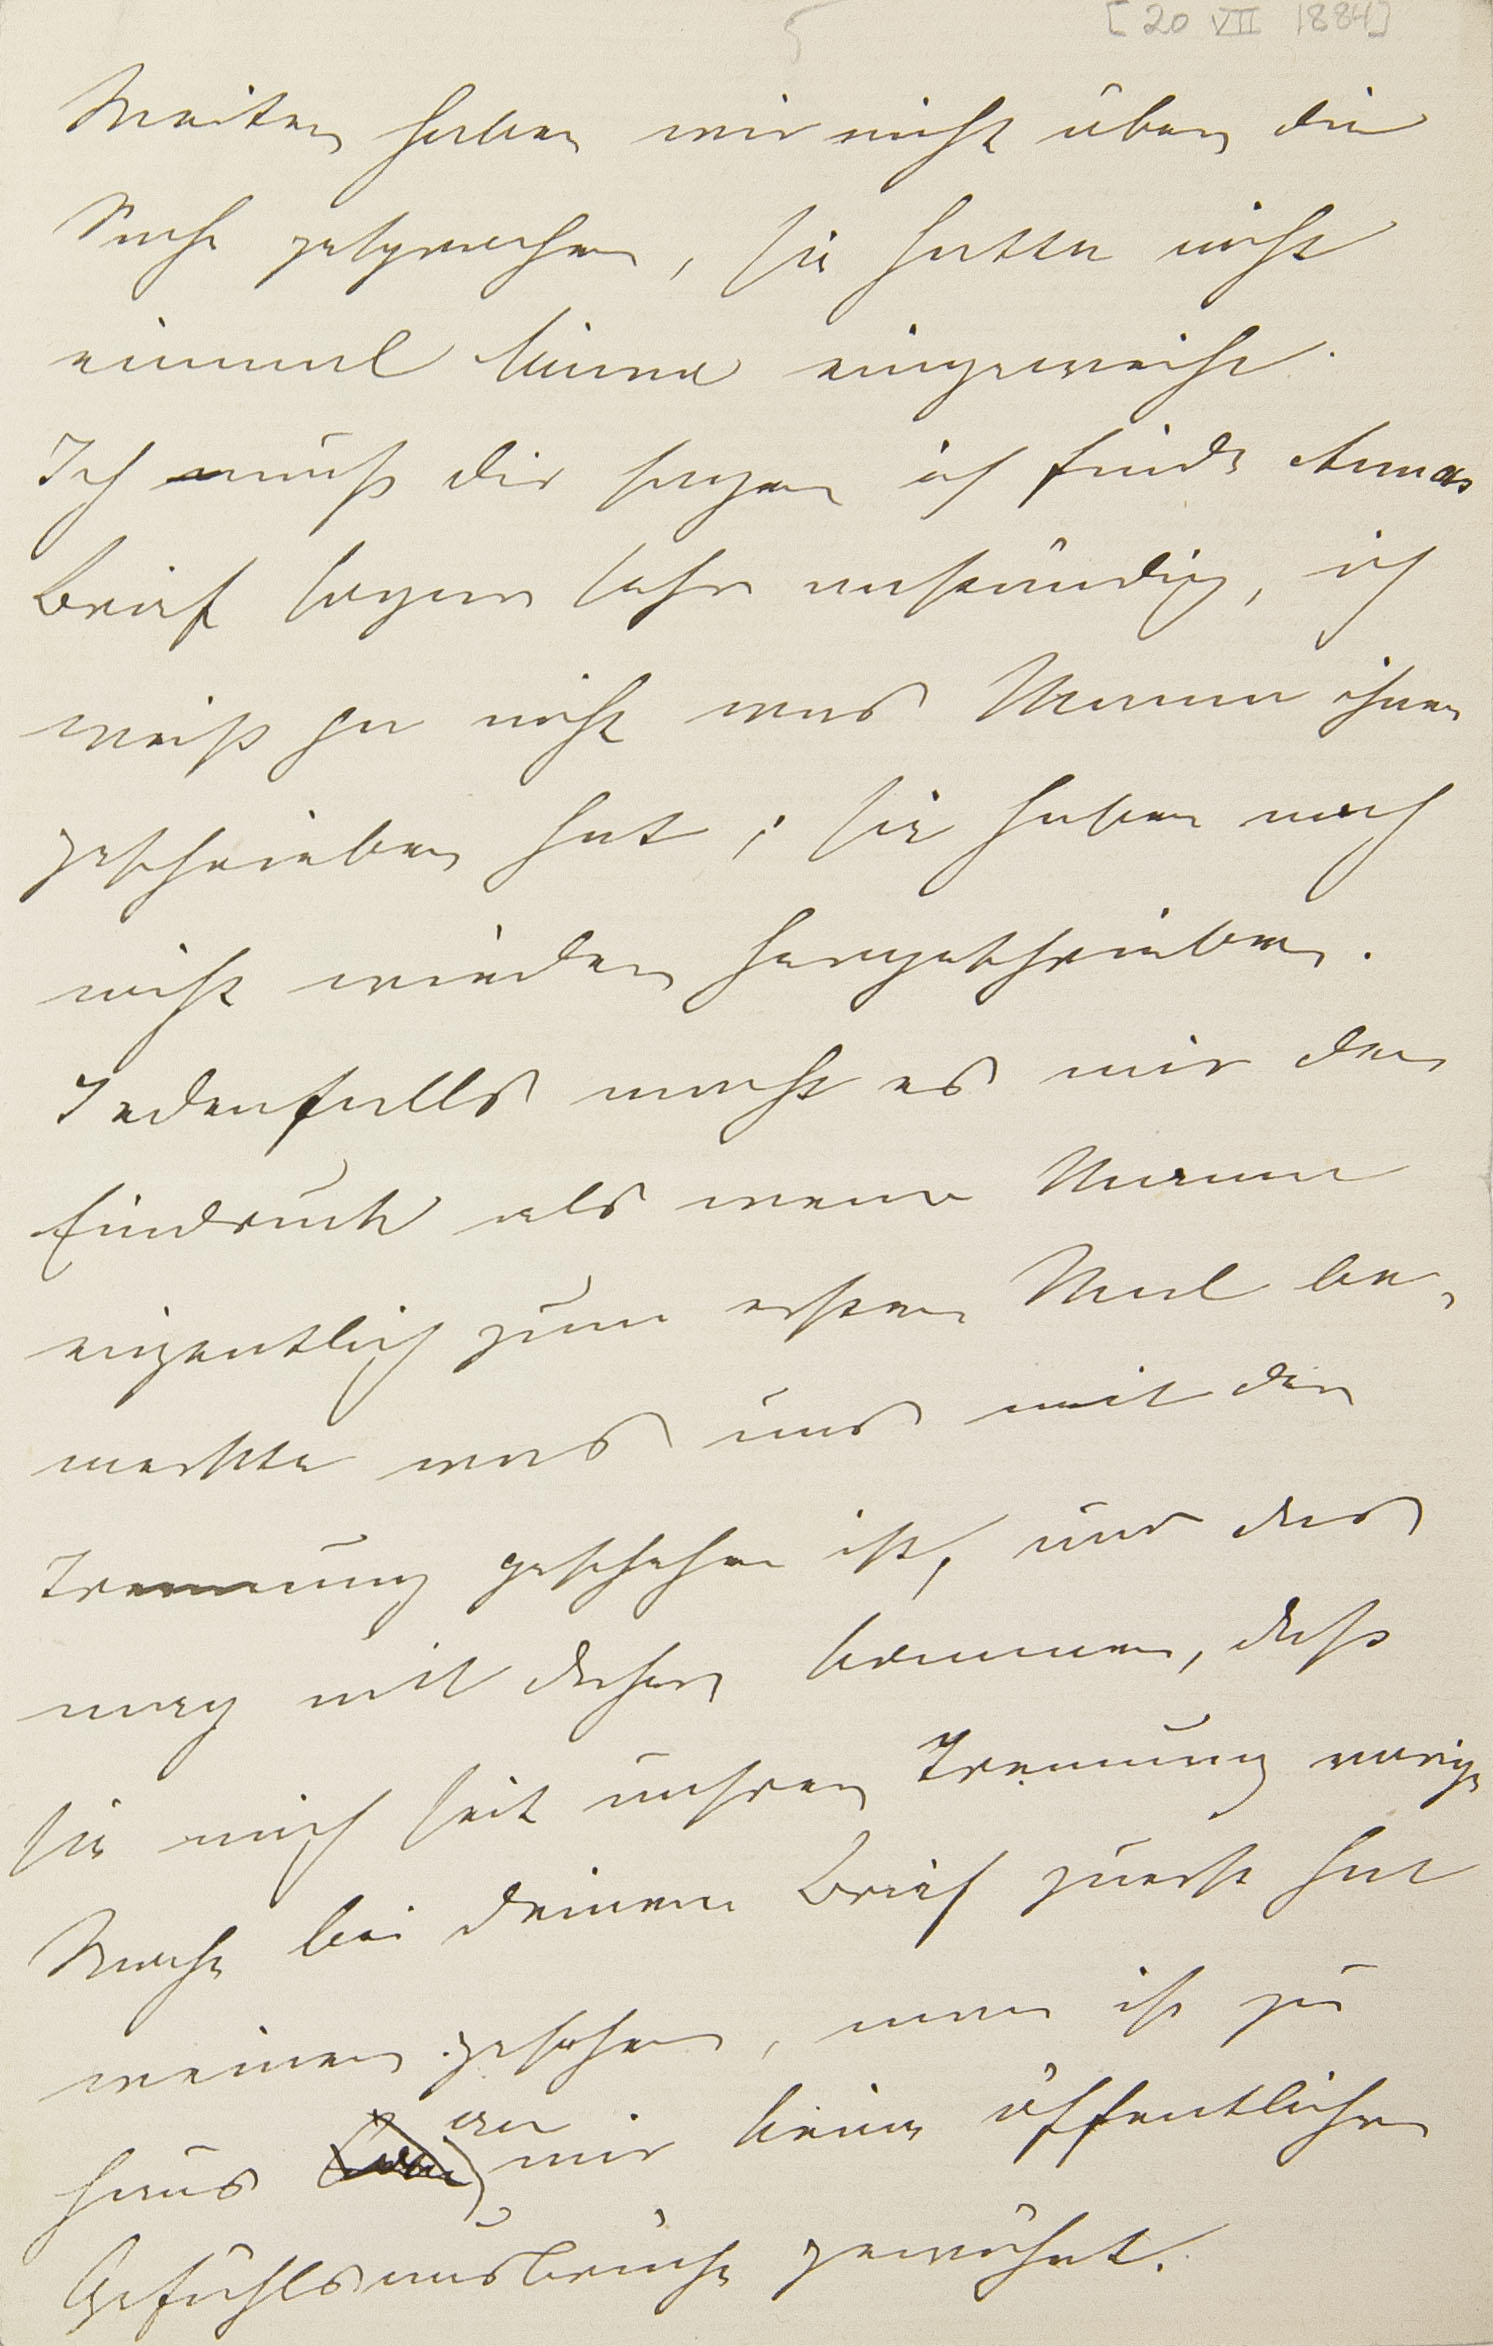 5 [20 VII 1884]
Weiter haben wir nicht über die
Sache gesprochen, sie hatte nicht
einmal Minna eingeweiht.
Ich muß dir sagen ich finde Annas
Brief sogar sehr anständig, ich
weiß ja nicht was Mama ihnen
geschrieben hat; sie haben noch
nicht wieder hergeschrieben.
Jedenfalls macht es mir den
Eindruck als wenn Mama
eigentlich zum ersten Mal be-
merkte was uns mit der
Trennung geschehen ist, und das
mag mit daher kommen, daß
sie mich seit unsrer Trennung vorige
Woche bei deinem Brief zuerst hat
weinen gesehen, man ist zu
Haus an mir keine öffentlichen
Gefühlsausbrüche gewöhnt.